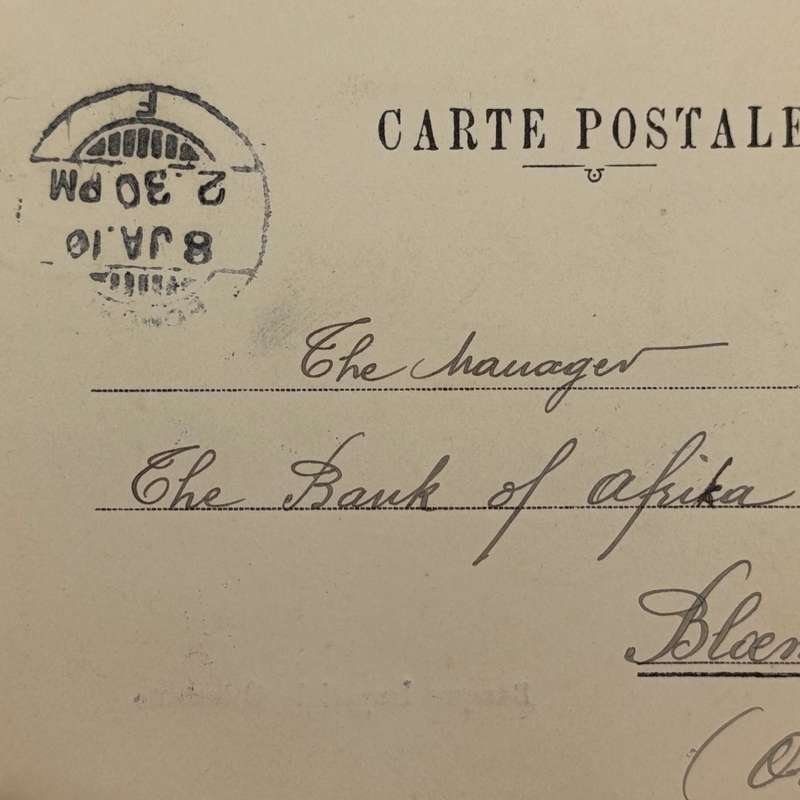 CARTE POSTALE
F
2.30 PM
8 JA.10
The Manager
The Bank of Afrika
Bloem
(O